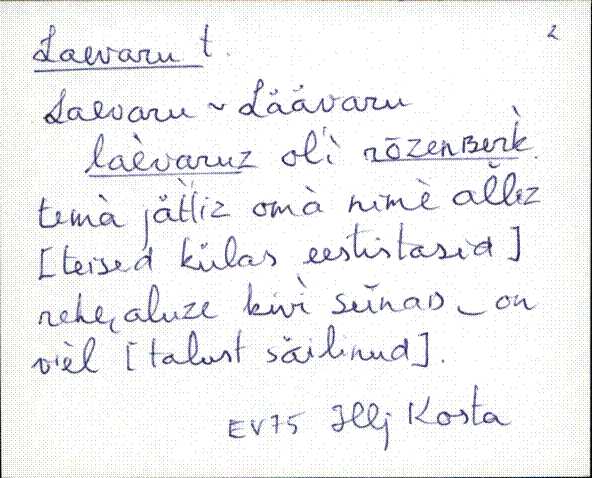 2
Laevaru t.
Laevaru ~ Läävaru
laèvaruz oli rōzenʙerk.
temà jät̆liz omà nimè al̆lez
[teised külas eestistasid]
rehe,aluze kivì seīnaᴅ on
vièl [talust säilinud].
EV75 Illj Kosta